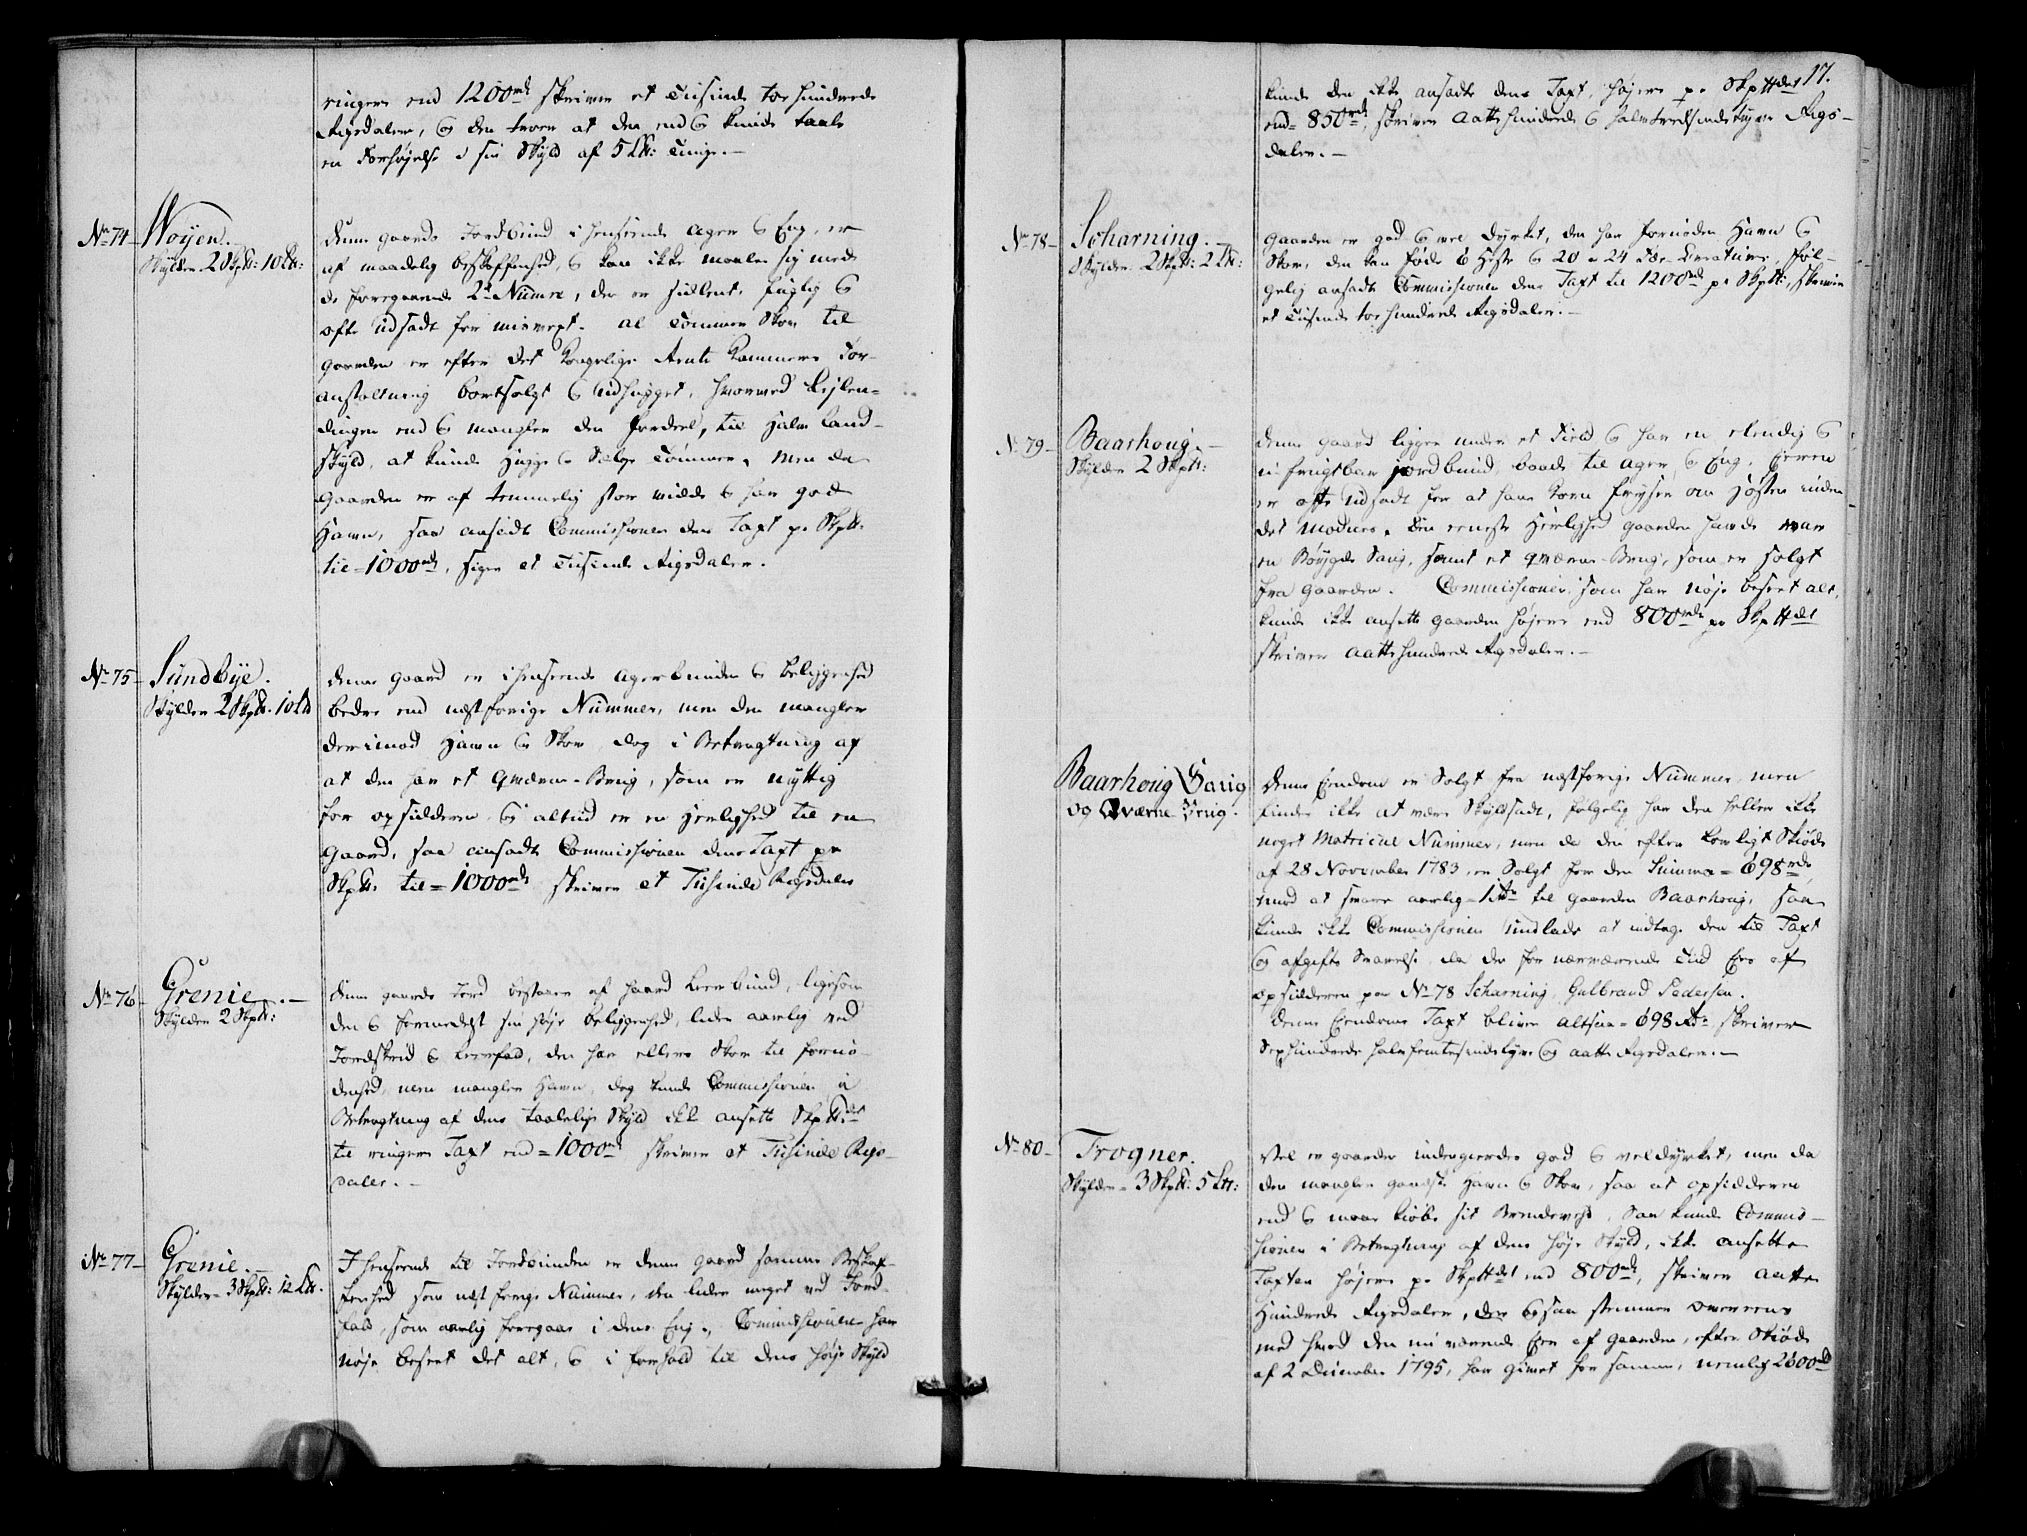 ringere end 1200rd skriver et Tusinde toe hundrede
Rigsdaler, og den troer at den end og kunde taale
en Forhøjelse i sin Skyld af 5 Lb: Tunge.—
No 74— Woyen.—
Skylder 2 Skp: 10 Lb:
Denne gaards Jordbund i henseende ager og Eng, er
af maadelig beskaffenhed, og kan ikke maale sig med
de foregaaende 2de Numre, den er sidlent fugtig og
ofte udsadt for misvext. al Tømmer Skov til
gaarden er efter det Kongelige Rente Kammers For-
anstaltning bortsolgt og udhugget, hvorved Lejlen-
dingen end og mangler den fordeel, til Halv Land-
skyld, at kunde hugge og Sælge Tømmer, men da
gaarden er af temmelig stor vidde og har god
Havn, saa ansadte Commissionen dens Taxt pr Skp:
til = 1000rd, siger et Tusinde Rigsdaler.
No 75— Sundbye.
Skylder 2 Skp. 10 Lb
denne gaard er i henseende agerbunden og beliggenhed
bedre end næstforige Nummer, men den mangler
derimod Havn og Skov, dog i Betragtning af
at den har et qværne-Brug, som er nyttig
for opsidderen og altid er en Herlighed til en
gaard, saa ansadte Commissionen dens Taxt pr
Skp: til = 1000rd skriver et Tusinde Rigsdaler
No 76— Grenie.—
Skylder 2 Skp:
Denne gaards Jord bestaaer af haard Leerbund, ligesom
den og formedelst sin høje beliggenhed, lider aarlig ved
Jordskred og Leerfald, den har ellers Skov til fornø-
denhed, men mangler Havn, dog kunde Commissionen i
Betragtning af dens taalelige Skyld ikke ansette Skpdet
til ringere Taxt end = 1000rd skriver et Tusinde Rigs-
daler.—
No 77— Grenie.—
Skylder = 3 Skp: 12 Lb.
I henseende til Jordbunden er denne gaard samme Beskaf-
fenhed som næst forige Nummer, den lider meget ved Jord-
fald, som aarlig foregaar i dens Eng, Commissionen har
nøje beseet det alt, og i forhold til dens høje Skyld
17.
kunde den ikke ansadte dens Taxt, højere pr Skpdet
end = 850rd, skriver aatte hundrede og halvtredsindstyve Rigs-
daler.—
No 78— Scharning.—
Skylder 2 Skp: 2 Lb:
Gaarden er god og vel dyrket, den har fornøden Havn og
Skov, den kan føde 6 Heste og 20 a 24 Fæe-Creaturer, Føl-
gelig ansadte Commissionen dens Taxt til 1200rd pr Skp:, skriver
et Tusinde toe hundrede Rigsdaler.—
No 79— Baarhoug.—
Skylder 2 Skp:
Denne gaard ligger under et Field og har en elendig og
ufrugtbar jordbund, baade til ager og Eng, Eieren
er ofte udsadt for at hans Korn fryser om Høsten inden
det modnes. Den eeneste Herlighed gaarden havde var
en Bøygde Saug, samt et qværne-Brug, som er solgt
fra gaarden. Commissionen som har nøje beseet alt,
kunde ikke ansette gaarden højere end 800rd pr Skpdet
skriver aatte hundrede Rigsdaler.—
Baarhoug Saug
og Qværne Brug.
Denne Eiendom er Solgt fra næstforige Nummer, men
findes ikke at være Skyldsadt, følgelig har den heller ikke
noget Matricul Nummer, men da den efter Lovligt Skiøde
af 28 November 1783, er Solgt for den Summa = 698rd,
imod at svare aarlig = 1 rd til gaarden Baarhoug, saa
kunde ikke Commissionen undlade at indtage den til Taxt
og afgifts Svarelse, da den for nærværende Tid Eies af
opsidderen paa No 78 Scharning, Gulbrand Pedersen.
Denne Eiendoms Taxt bliver altsaa = 698 rd skriver
Sexhundrede halvfemtesindstyve og aatte Rigsdaler.—
No 80— Trogner.
Skylder = 3 Skp: 5 Lb:
Vel er gaarden indengierdes god og veldyrket, men da
den mangler gandske Havn og Skov, saa at opsidderen
end og maae kiøbe sit Brændeved, saa kunde Commis-
sionen i Betragtning af dens høje Skyld, ikke ansette
Taxten højere pr Skpdet end 800rd, skriver aatte
Hundrede Rigsdaler, der og saa stemmer overeens
med hvad den nu værende Eier af gaarden, efter Skiøde
af 2 December 1795, har givet for samme, nemlig 2600rd